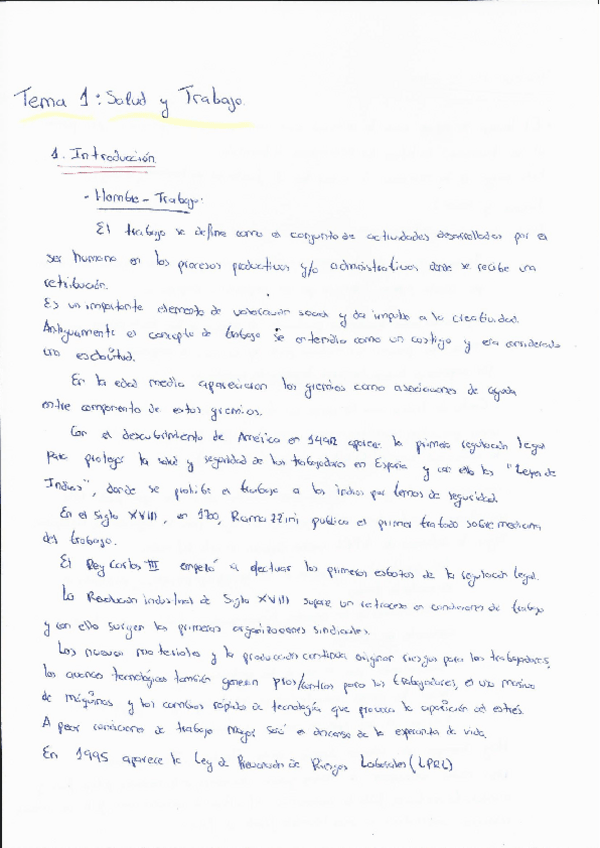 Tema 1: Salud y Trabajo.
1. Introducción
- Hombre - Trabajo:
El trabajo se define como el conjunto de actividades desarrolladas por el
ser humano en los procesos productivos y/o administrativos donde se recibe una
retribución.
Es un importante elemento de valoración social y da impulso a la creatividad.
Antiguamente el concepto de trabajo se entendía como un castigo y era considerado
una esclavitud.
En la edad media aparecieron los gremios como asociaciones de ayuda
entre componente de estos gremios.
Con el descubrimiento de América en 1492 aparece la primera regulación legal
para proteger la salud y seguridad de los trabajadores en España y con ello las "Leyes de
Indias", donde se prohibe el trabajo a los indios por temas de seguridad.
En el Siglo XVIII, en 1700, Ramazzini publica el primer tratado sobre medicina
del trabajo.
El Rey Carlos III empezó a efectuar los primeros esbozos de la regulación legal.
La Revolución industrial de Siglo XVIII supone un retroceso en condiciones de trabajo
y con ello surgen las primeras organizaciones sindicales.
Los nuevos materiales y la producción continua originan riesgos para los trabajadores,
los avances tecnológicos también generan pros/contras para los trabajadores, el uso masivo
de máquinas y los cambios rápidos de tecnología que provoca la aparición del estrés.
A peor condiciones de trabajo mayor será el descenso de la esperanza de vida.
En 1995 aparece la Ley de Prevención de Riesgos Laborales (LPRL)